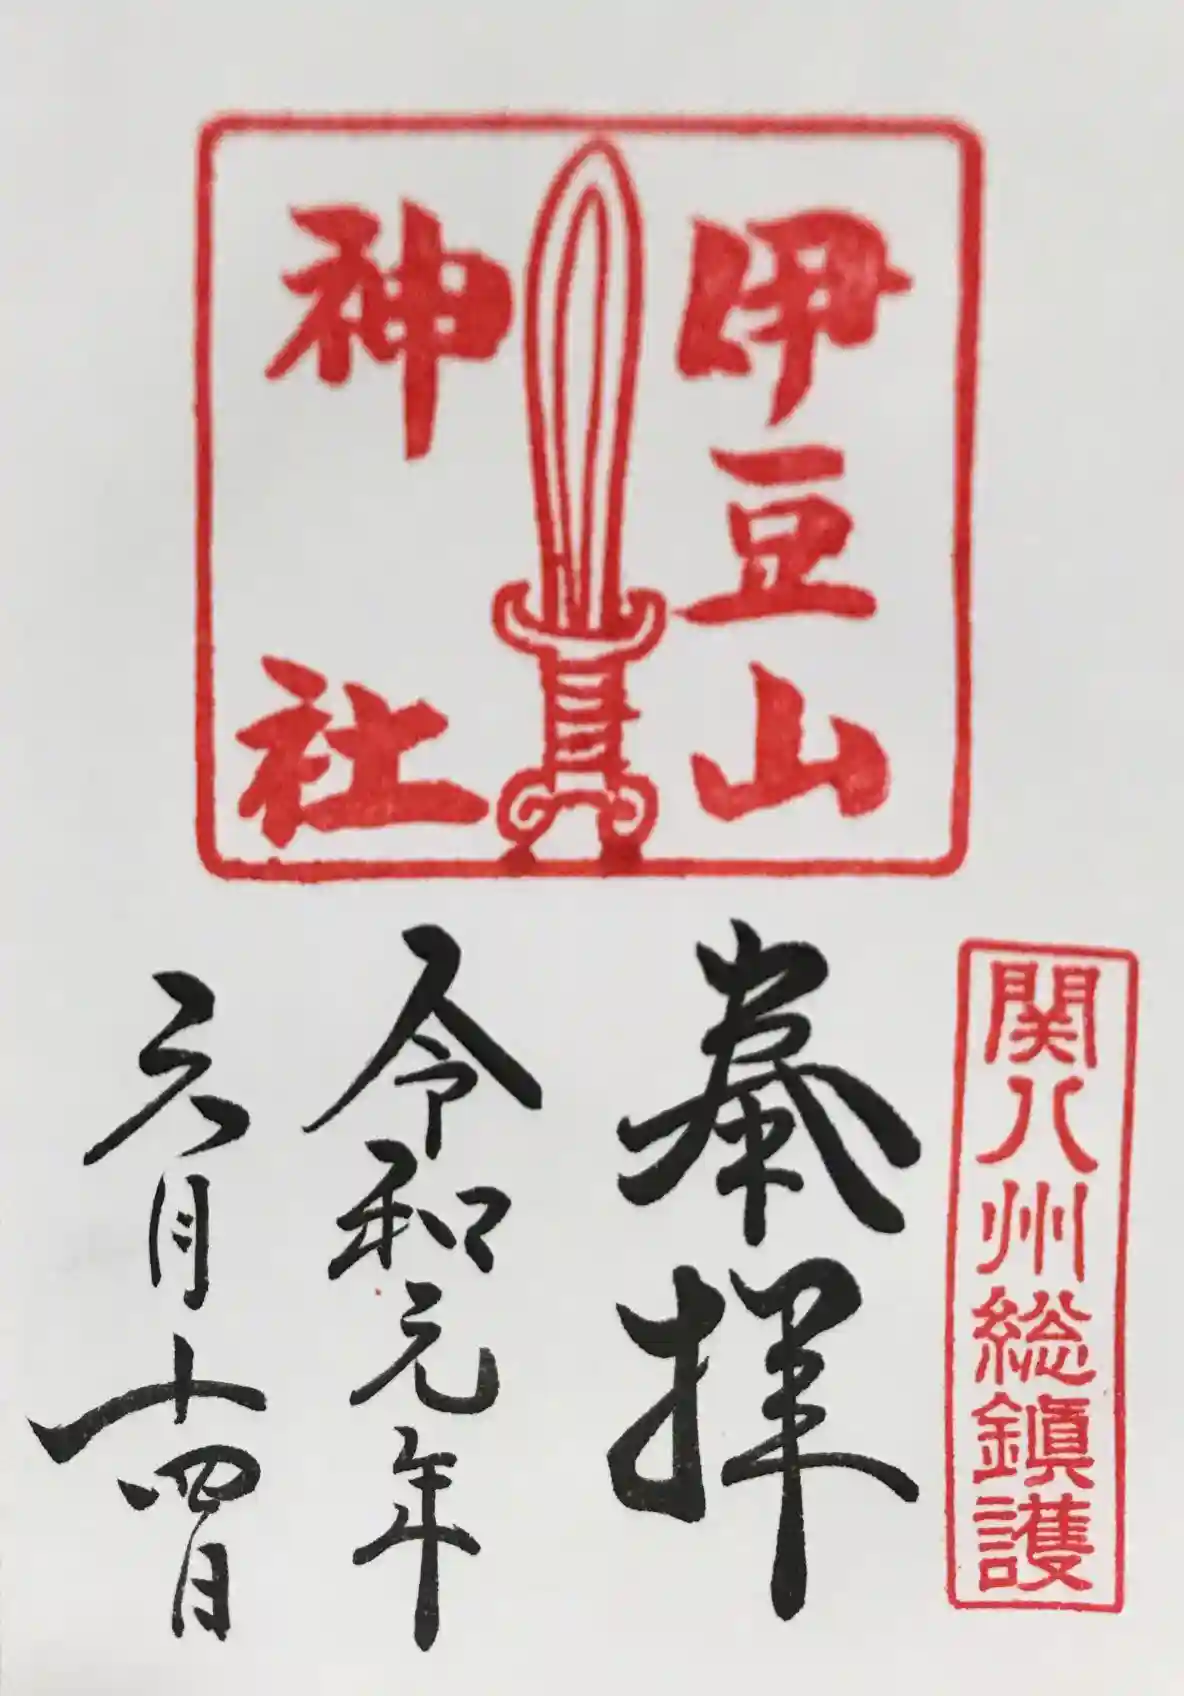 伊豆山
神社
関八州総鎮護
奉拝
令和元年
六月十四日